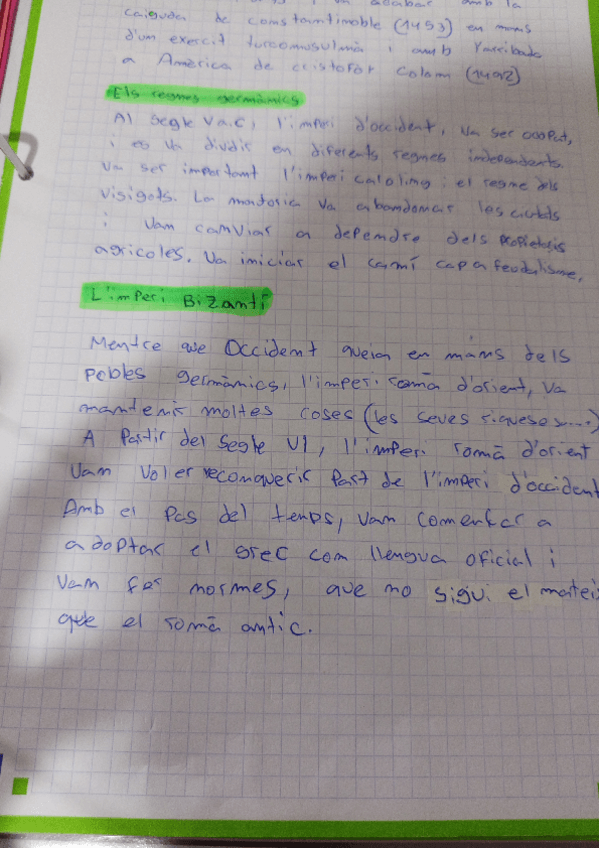 acabar amb la
caiguda de constantinoble (1453) en mans
d'un exercit turcomusulmà i amb l'arribada
a Amèrica de cristofor colom (1492)
Els regnes germànics
Al segle V a.C, l'imperi d'occident, va ser ocupat,
i es va dividir en diferents regnes independents.
Va ser important l'imperi caloling i el regne dels
visigots. La majoria va abandonar les ciutats
i vam canviar a dependre dels propietaris
agricoles. Va iniciar el camí cap a feudalisme.
L'imperi Bizantí
Mentre que Occident queia en mans dels
pobles germànics, l'imperi romà d'orient, va
mantenir moltes coses (les seves riqueses....)
A Partir del segle VI, l'imperi romà d'orient
Vam voler reconquerir part de l'imperi d'occident
Amb el pas del temps, vam comentar a
adoptar el grec com llengua oficial i
Vam fer normes, que no sigui el mateix
que el romà antic.